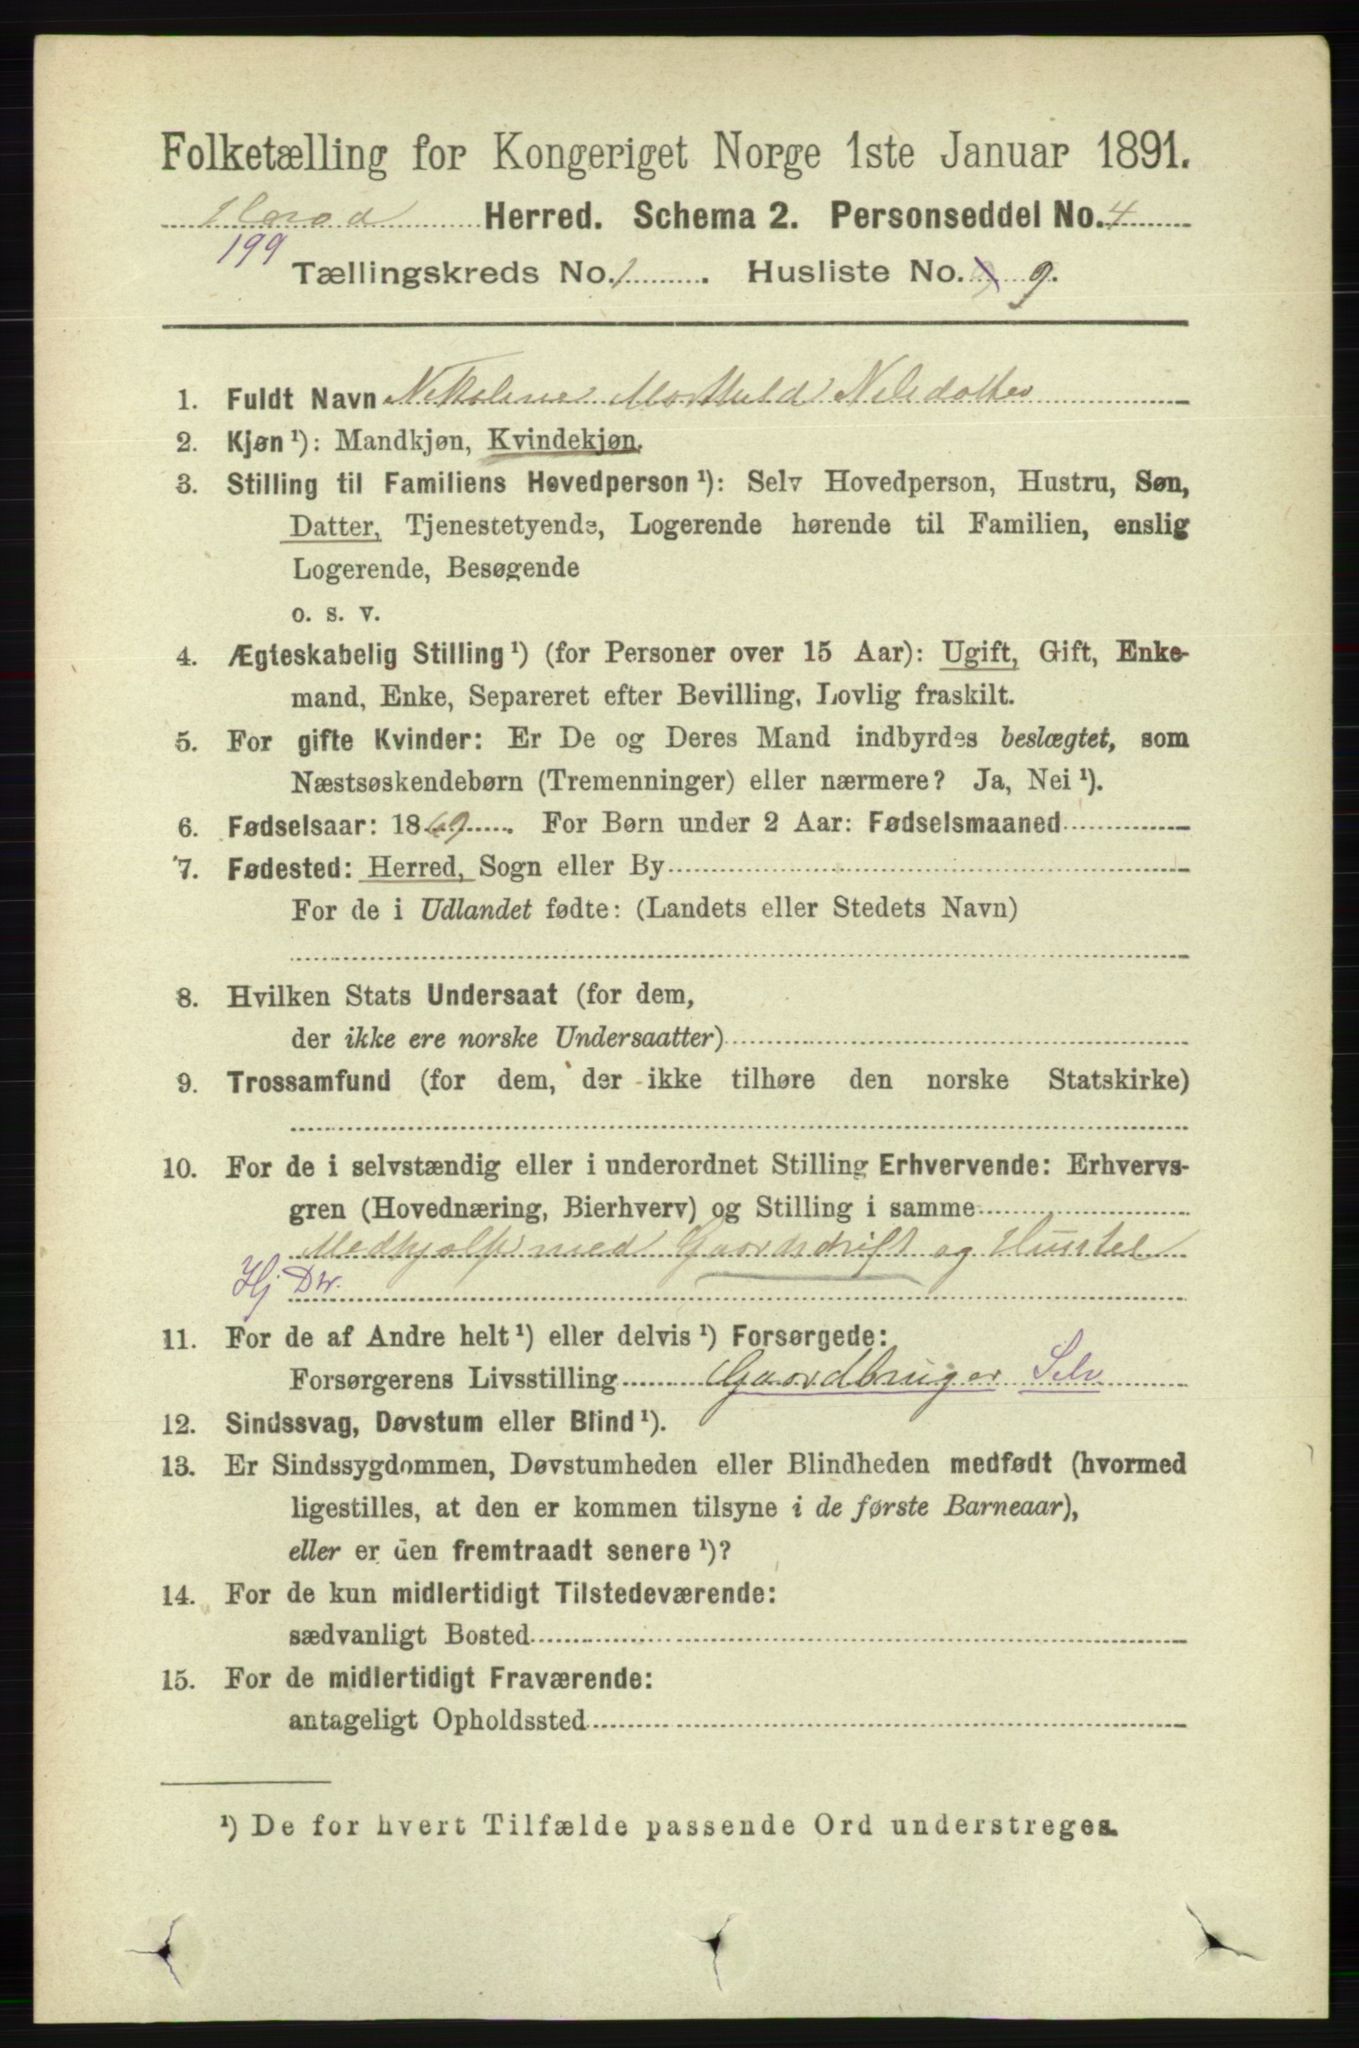 Folketælling for Kongeriget Norge 1ste Januar 1891.
Herad Herred. Schema 2. Personseddel No. 4
199
Tællingskreds No. 1. Husliste No. 9.
1. Fuldt Navn Nikoline Mathild Nilsdatter
2. Kjøn ¹): Mandkjøn, Kvindekjøn.
3. Stilling til Familiens Hovedperson ¹): Selv Hovedperson, Hustru, Søn,
Datter, Tjenestetyende, Logerende hørende til Familien, enslig
Logerende, Besøgende
o. s. v.
4. Ægteskabelig Stilling ¹) (for Personer over 15 Aar): Ugift, Gift, Enke-
mand, Enke, Separeret efter Bevilling, Lovlig fraskilt.
5. For gifte Kvinder: Er De og Deres Mand indbyrdes beslægtet, som
Næstsøskendebørn (Tremenninger) eller nærmere? Ja, Nei ¹).
6. Fødselsaar: 1869. For Børn under 2 Aar: Fødselsmaaned
7. Fødested: Herred, Sogn eller By
For de i Udlandet fødte: (Landets eller Stedets Navn)
8. Hvilken Stats Undersaat (for dem,
der ikke ere norske Undersaatter)
9. Trossamfund (for dem, der ikke tilhøre den norske Statskirke)
10. For de i selvstændig eller i underordnet Stilling Erhvervende: Erhvervs-
gren (Hovednæring, Bierhverv) og Stilling i samme
Medhjelp med Gaardsdrift og Hustel
Hj Dtr.
11. For de af Andre helt ¹) eller delvis ¹) Forsørgede:
Forsørgerens Livsstilling Gaardbruger Selv
12. Sindssvag, Døvstum eller Blind ¹).
13. Er Sindssygdommen, Døvstumheden eller Blindheden medfødt (hvormed
ligestilles, at den er kommen tilsyne i de første Barneaar),
eller er den fremtraadt senere ¹)?
14. For de kun midlertidigt Tilstedeværende:
sædvanligt Bosted
15. For de midlertidigt Fraværende:
antageligt Opholdssted
¹) De for hvert Tilfælde passende Ord understreges.